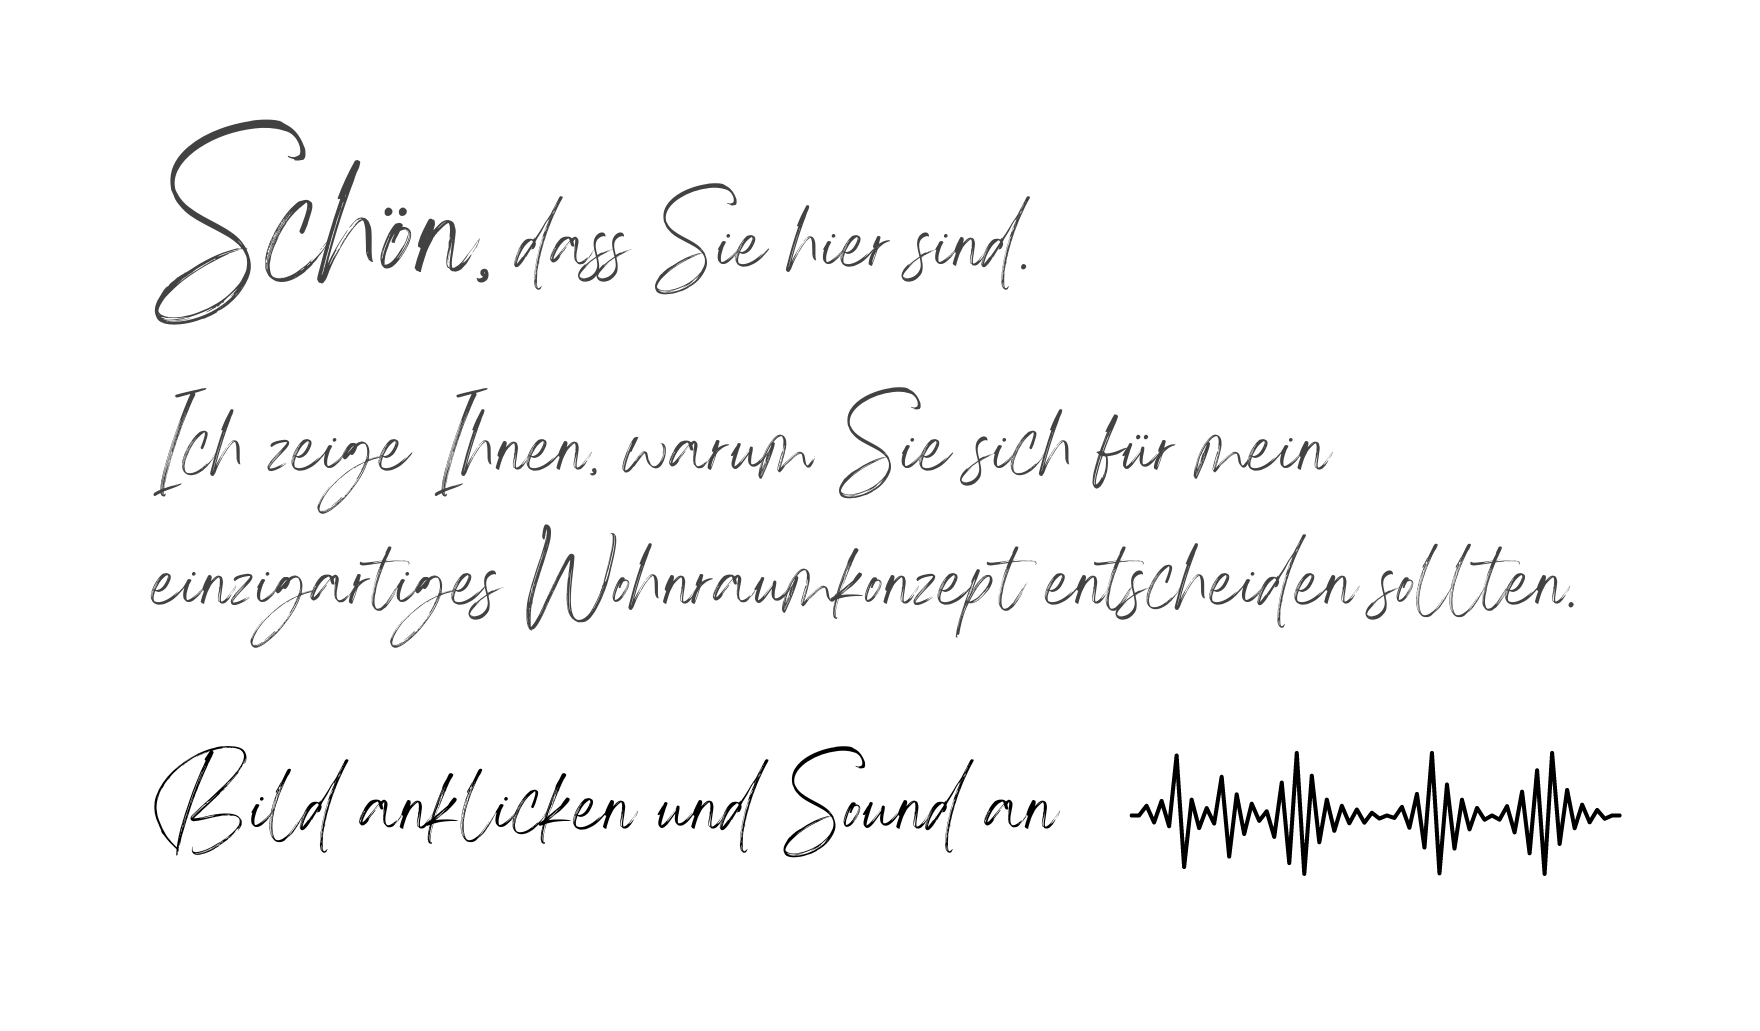 Schön, dass Sie hier sind.
Ich zeige Ihnen, warum Sie sich für mein
einzigartiges Wohnraumkonzept entscheiden sollten.
Bild anklicken und Sound an